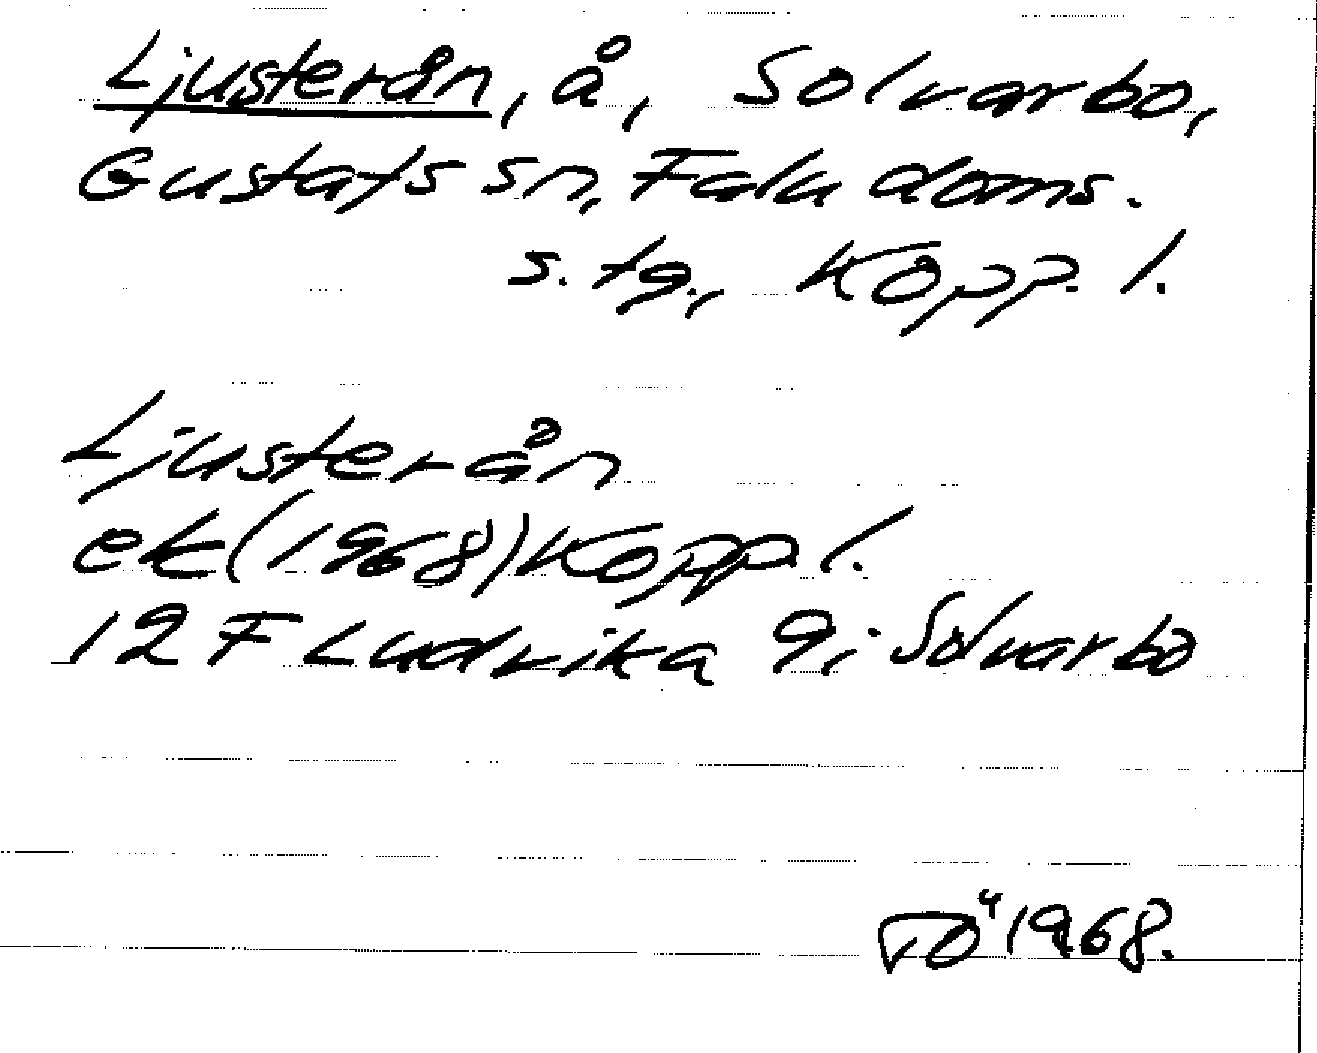 Ljusterån, å, Solvarbo,
Gustafs sn, Falu doms.
s. tg., Kopp. l.
Ljusterån
ek (1968) Kopp l.
12 F Ludvika 9i Solvarbo
1968.